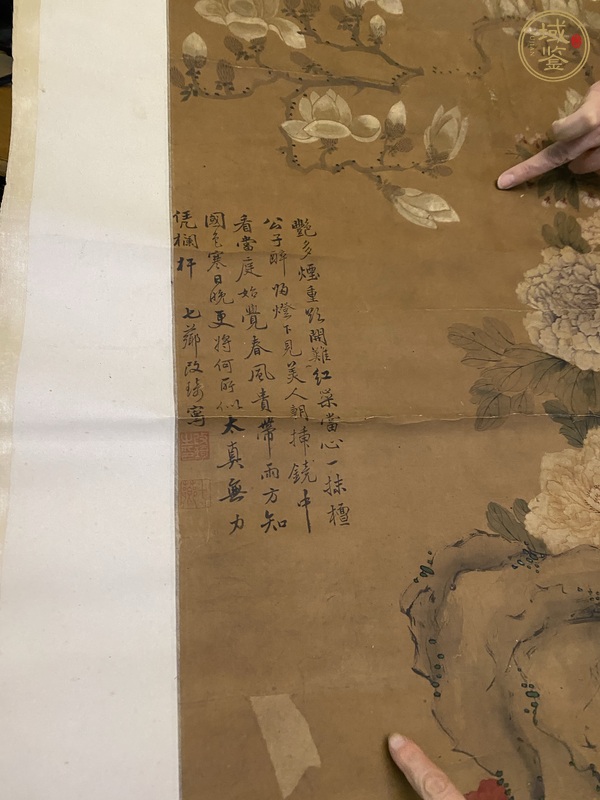 艷多煙重欲開難紅蕊當心一抹檀
公子醉歸燈下見美人朝插鏡中
看當庭始覺春風貴帶雨方知
國色寒日晚更將何所似太真無力
凭欄杆 七薌改琦寫
域鉴